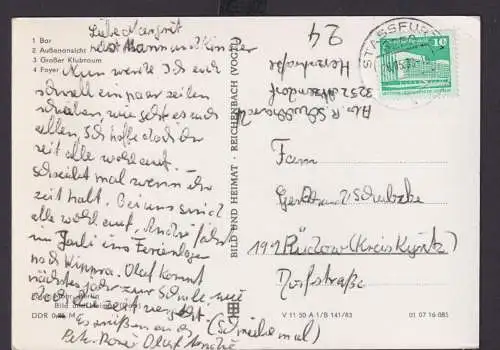 1 Bar
2 Außenansicht
3 Großer Klubraum
4 Foyer
Liebe Margrit
nebst Mann und Kinder
Nun werde ich euch
schnell ein paar Zeilen
schreiben, wie geht es euch
allen, Ich hoffe doch ihr
seit alle wohlauf.
schreibt mal wenn ihr
Zeit habt. Bei uns sind
alle wohl auf, André fährt
im Juli ins Ferienlager
nach Wippra. Olaf kommt
nächstes Jahr zur Schule, wie
doch die Zeit vergeht.
Es grüßen euch
Olaf André
(Schreibe mal)
DDR
BILD UND HEIMAT · REICHENBACH (VOGTL)
V 11 50 A 1/B 141/83
01 07 16 085
24
Abs. R.
3252
STASSFURT
10
DDR
Fam
Gerd und
191 Rüdow (Kreis Kyritz)
Dorfstraße